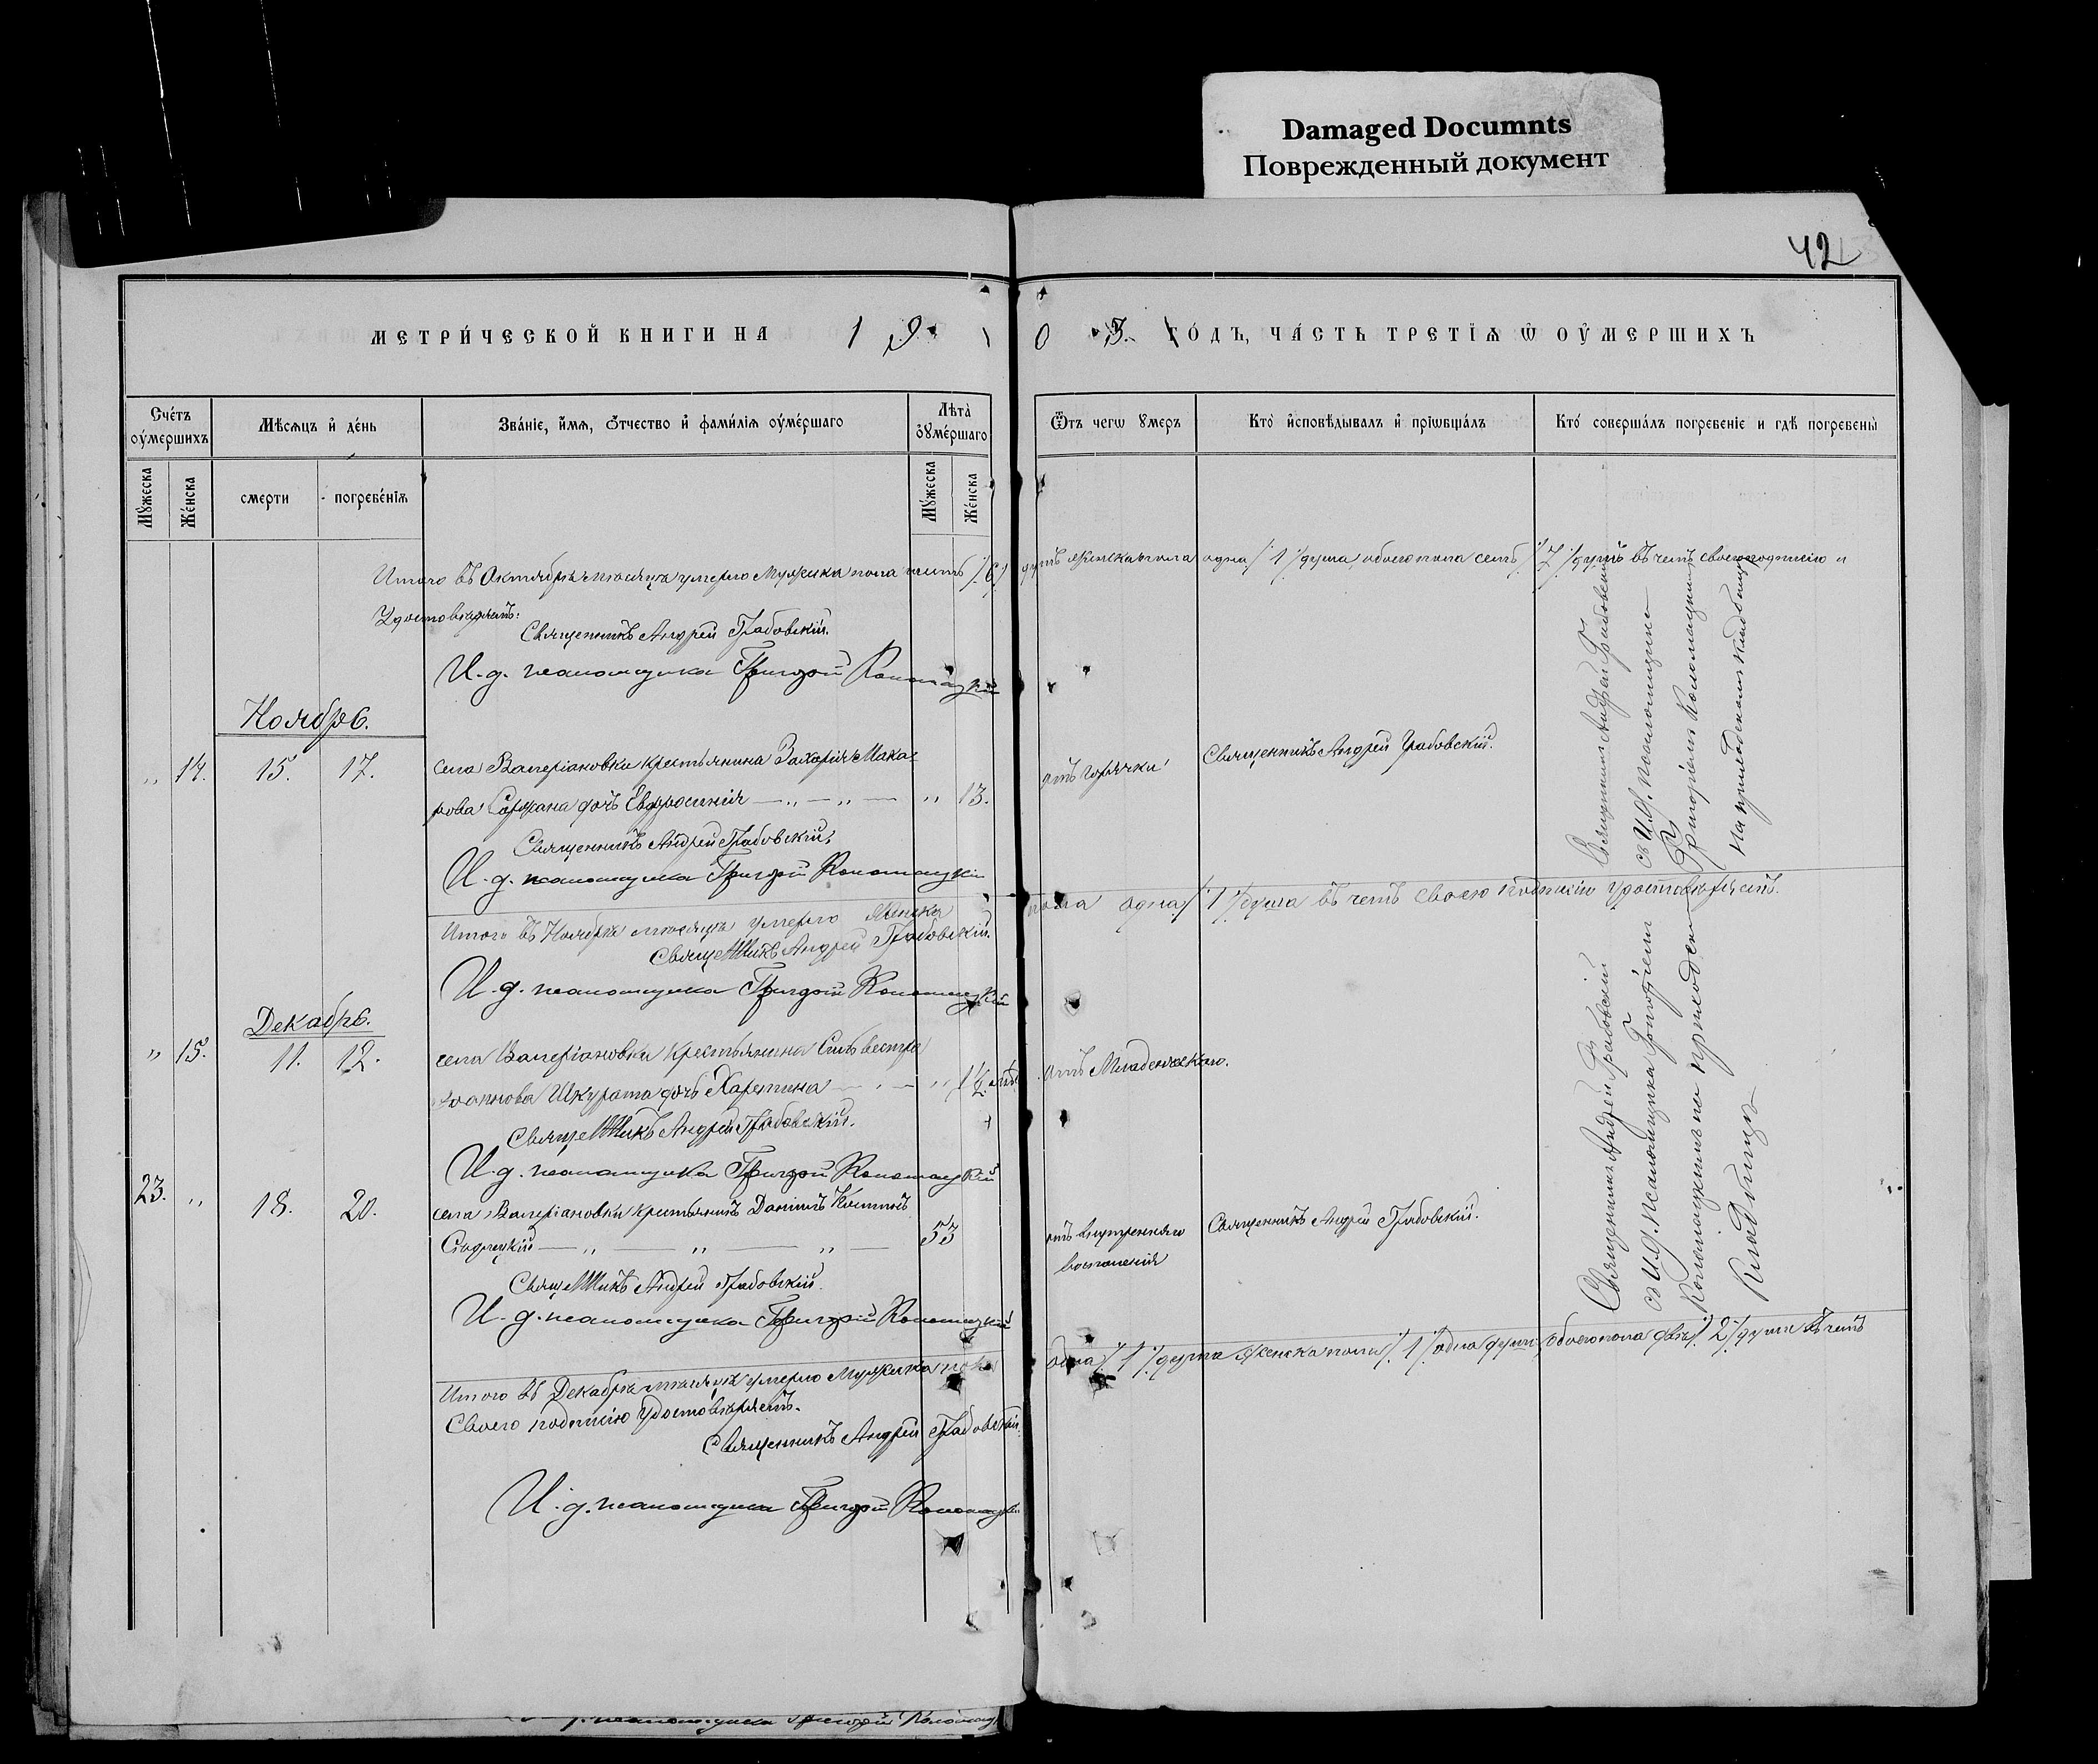 Damaged Documnts
Поврежденный документ
42
МЕТРИ́ЧЕСКОЙ КНИГИ НА 1903. ГО́ДЪ, ЧА́СТЬ ТРЕТІЯ Ѡ ОУ҆МЕРШИХЪ
Сче́тъ оу҆ме́ршихъ
Мѣ́сяцъ и҆ де́нь
Зва́ніе, и҆́мя, ѻ҆́тчество и҆ фами́лія оу҆ме́ршаго
Лѣта̀ оу҆ме́ршаго
Ѿ чегѡ ꙋмеръ
Кто̀ и҆сповѣ́дывалъ и҆ прїѡбща́лъ
Кто́ соверша́лъ погребе́ніе и гдѣ̀ погребены̀
Мꙋ́жеска
Же́нска
сме́рти
погребе́нія
Мꙋ́жеска
Же́нска
Итого въ Октябрѣ мѣсяцѣ умерло Мужска пола шесть /6/ душъ женска пола одна /1/ душа, обоего пола семь /7/ душъ въ чемъ своею подписію и
Удостовѣряемъ:
Священникъ Андрей Грабовскій.
И. д. псаломщика Григорій
Ноябрь.
„ 14. 15. 17. села Валеріановки крестьянина Захарія Мака-
рова дочь Евфросинія — „ — „ — „ 13.
отъ горячки
Священникъ Андрей Грабовскій.
Священникъ Андрей Грабовскій
съ И. д. псаломщика
Григоріемъ
на приходскомъ кладбищѣ
Священникъ Андрей Грабовскій.
И. д. псаломщика Григорій
Итого въ Ноябрѣ мѣсяцѣ умерло Женска пола одна /1/ душа въ чемъ своею подписію удостовѣряемъ.
Священникъ Андрей Грабовскій.
И. д. псаломщика Григорій
Декабрь.
„ 15. 11. 12. села Валеріановки крестьянина Сильвестра
Іоаннова Шкурата дочь Харитина
отъ Младенческаго.
Священникъ Андрей Грабовскій
съ И. д. псаломщика Григоріемъ
на приходском
Кладбищѣ
Священникъ Андрей Грабовскій.
И. д. псаломщика Григорій
23. „ 18. 20. села Валеріановки крестьянинъ Даніилъ
— „ — „ — „ — 53
отъ внутренняго
воспаленія
Священникъ Андрей Грабовскій.
Священникъ Андрей Грабовскій.
И. д. псаломщика Григорій
Итого въ Декабрѣ мѣсяцѣ умерло Мужска пола одна /1/ душа женска пола /1/ одна душа обоего пола двѣ /2/ души въ чемъ
Своею подписію удостовѣряемъ.
Священникъ Андрей Грабовскій.
И. д. псаломщика Григорій